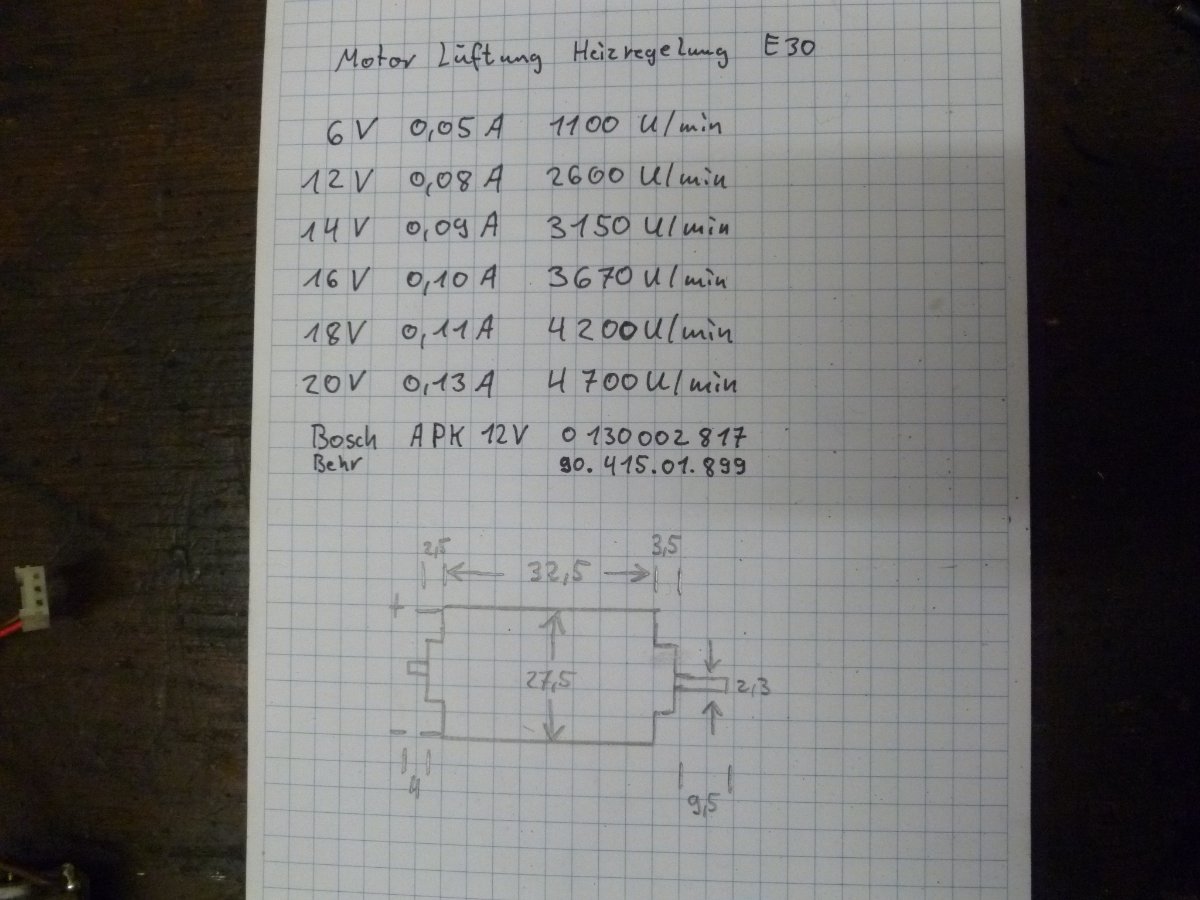 Motor Lüftung Heizregelung E30
6 V 0,05 A 1100 U/min
12 V 0,08 A 2600 U/min
14 V 0,09 A 3150 U/min
16 V 0,10 A 3670 U/min
18 V 0,11 A 4200 U/min
20 V 0,13 A 4700 U/min
Bosch APK 12V 0 130 002 817
Behr 90.415.01.899
2,5 32,5 3,5
+
27,5 2,3
-
4 9,5